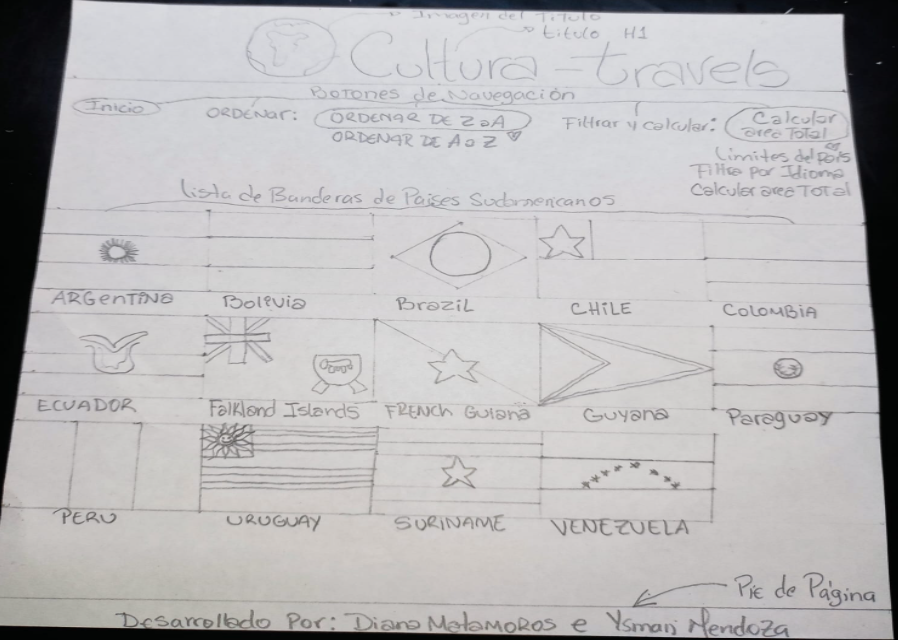 Imagen del Titulo
titulo H1
Cultura-travels
Botones de Navegación
Inicio
ORDENAR:
ORDENAR DE Z a A
ORDENAR DE A a Z
Filtrar y calcular:
Calcular
area Total
Limites del País
Filtra por Idioma
Calcular area TOTAL
Lista de Banderas de Paises Sudamericanos
ARGentina Bolivia Brazil CHILE COLOMBIA
ECUADOR Falkland Islands FRENCH Guiana Guyana Paraguay
PERU URUGUAY SURINAME VENEZUELA
Pie de Página
Desarrollado Por: Diana Matamoros e Ysmari Mendoza